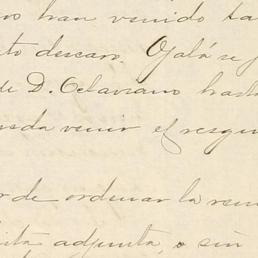 han venido ta
to descaro. Ojalá se p
de D. Octaviano hasta
venir el resgu
de ordenar la rem
adjunta, o sin